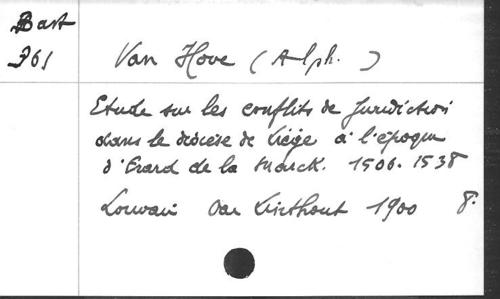 Bast
961
Van Hove (Alph.)
Etude sur les conflits de Juridiction
dans le diocèse de Liège à l'époque
d'Erard de la Marck. 1506. 1538
Louvain Van Linthout 1900 8.